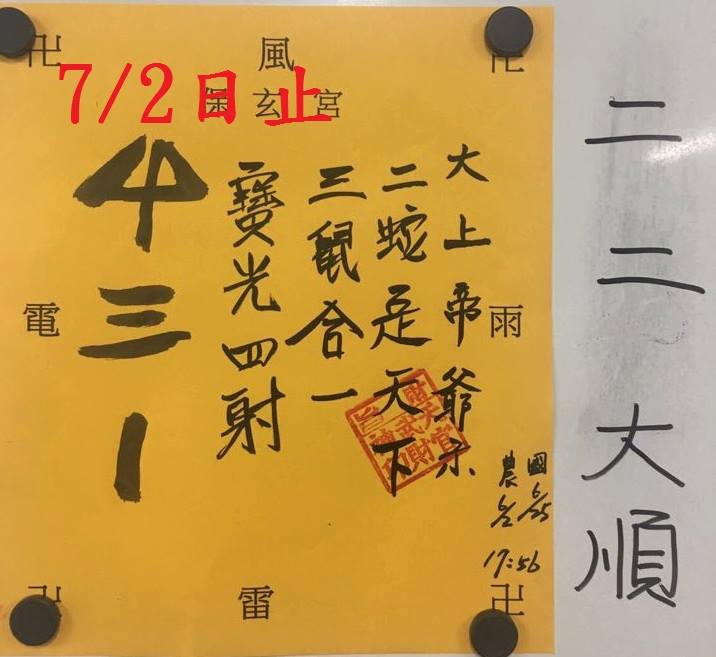 卍 風 卍
7/2日止
保玄宮
二二大順
大上帝爺示
二蛇走天下
三鼠合一
寶光四射
三
1
電 雨
國 6/25
農 6/2
17:56
卍 雷 卍